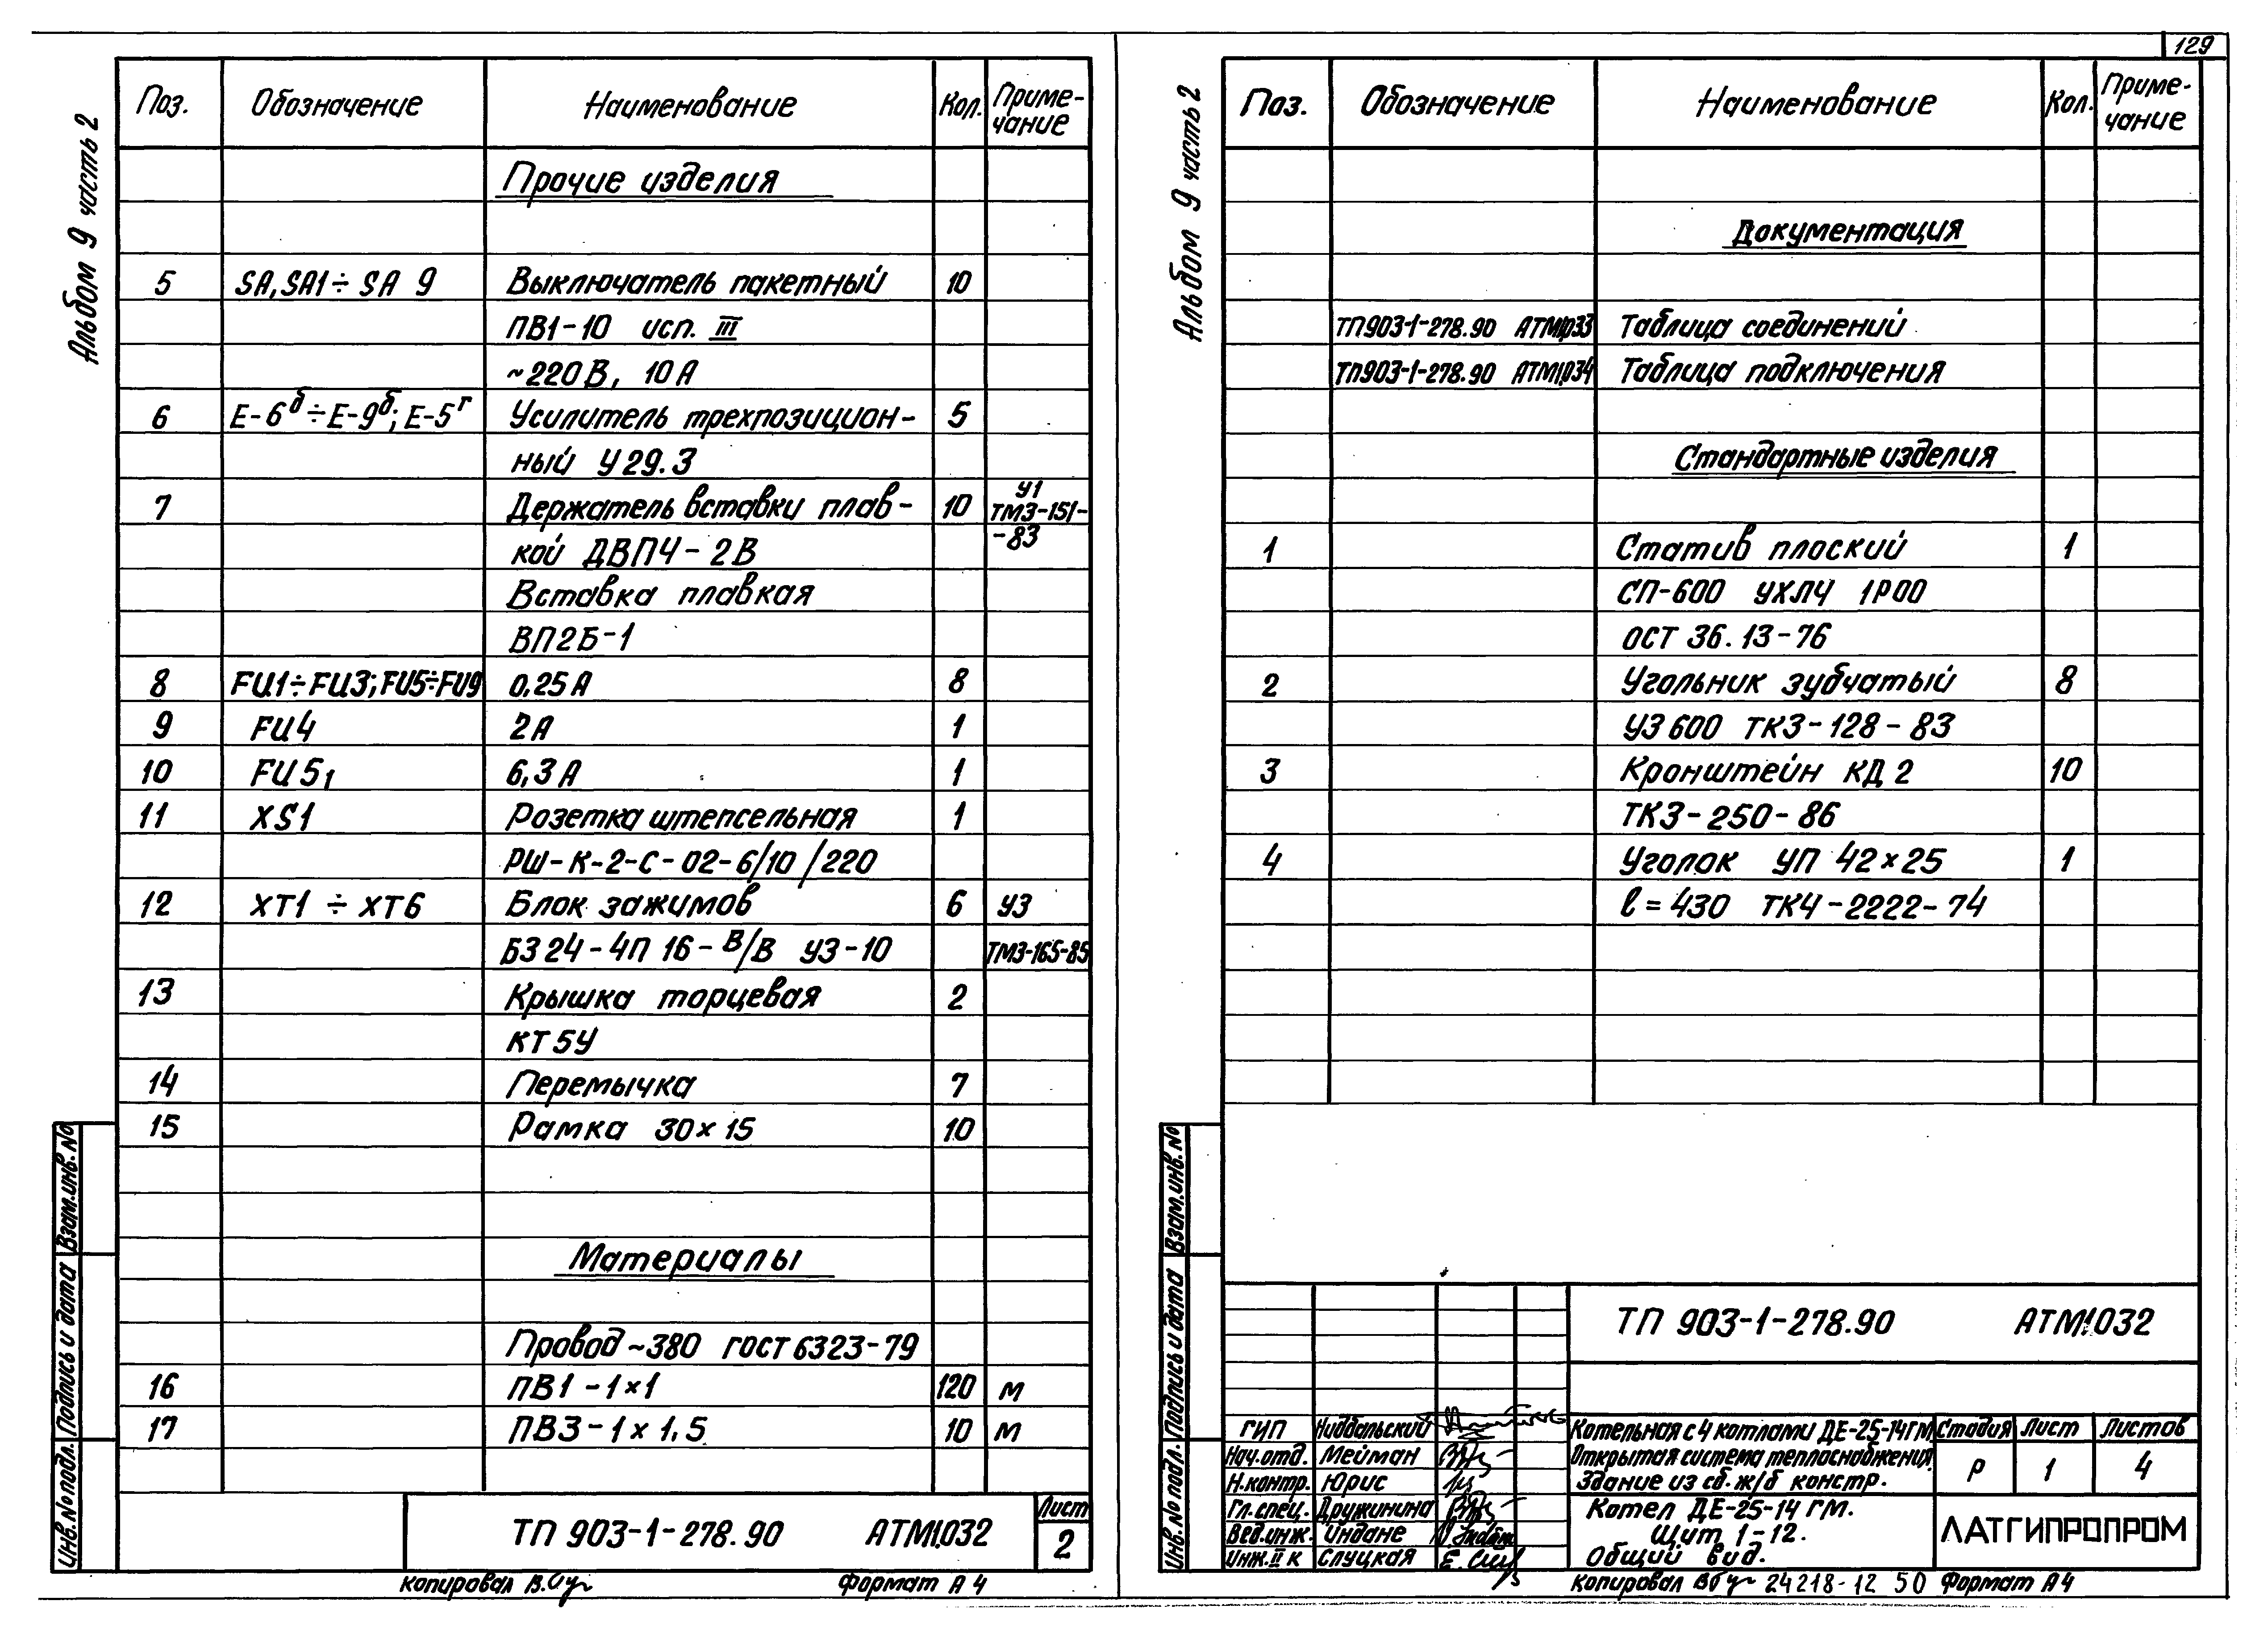 129
Альбом 9 часть 2
Поз. Обозначение Наименование Кол. Приме-
чание
Прочие изделия
5 SA, SA1÷SA 9 Выключатель пакетный 10
ПВ1-10 исп. III
~220В, 10А
6 Е-6б÷Е-9б; Е-5г Усилитель трехпозицион- 5
ный У29.3
7 Держатель вставки плав- 10 У1 ТМ3-151-
-83
кой ДВП4-2В
Вставка плавкая
ВП2Б-1
8 FU1÷FU3; FU5÷FU9 0,25А 8
9 FU4 2А 1
10 FU5₁ 6,3А 1
11 XS1 Розетка штепсельная 1
РШ-К-2-С-02-6/10/220
12 XT1÷XT6 Блок зажимов 6 У3
БЗ24-4П16-В/В У3-10 ТМ3-165-85
13 Крышка торцевая 2
КТ5У
14 Перемычка 7
15 Рамка 30×15 10
Материалы
Провод ~380 ГОСТ 6323-79
16 ПВ1-1×1 120 м
17 ПВ3-1×1,5 10 м
Взам.инв.№
Подпись и дата
Инв.№подл.
ТП 903-1-278.90 АТМ1.032 Лист
2
Копировал Формат А4
Альбом 9 часть 2
Поз. Обозначение Наименование Кол. Приме-
чание
Документация
ТП903-1-278.90 АТМ1.033 Таблица соединений
ТП903-1-278.90 АТМ1.034 Таблица подключения
Стандартные изделия
1 Статив плоский 1
СП-600 УХЛ4 1Р00
ОСТ 36.13-76
2 Угольник зубчатый 8
УЗ600 ТК3-128-83
3 Кронштейн КД2 10
ТК3-250-86
4 Уголок УП 42×25 1
l=430 ТК4-2222-74
Взам.инв.№
Подпись и дата
Инв.№подл.
ТП 903-1-278.90 АТМ1.032
ГИП Котельная с 4 котлами ДЕ-25-14ГМ Стадия Лист Листов
Нач.отд. Мейман Открытая система теплоснабжения.
Н.контр. Юрис Здание из сб.ж/б констр. Р 1 4
Гл.спец. Дружинина Котел ДЕ-25-14 ГМ.
Вед.инж. Индане Щит 1-12.
Инж.II к Слуцкая Общий вид.
ЛАТГИПРОПРОМ
Копировал 24218-12 50 Формат А4